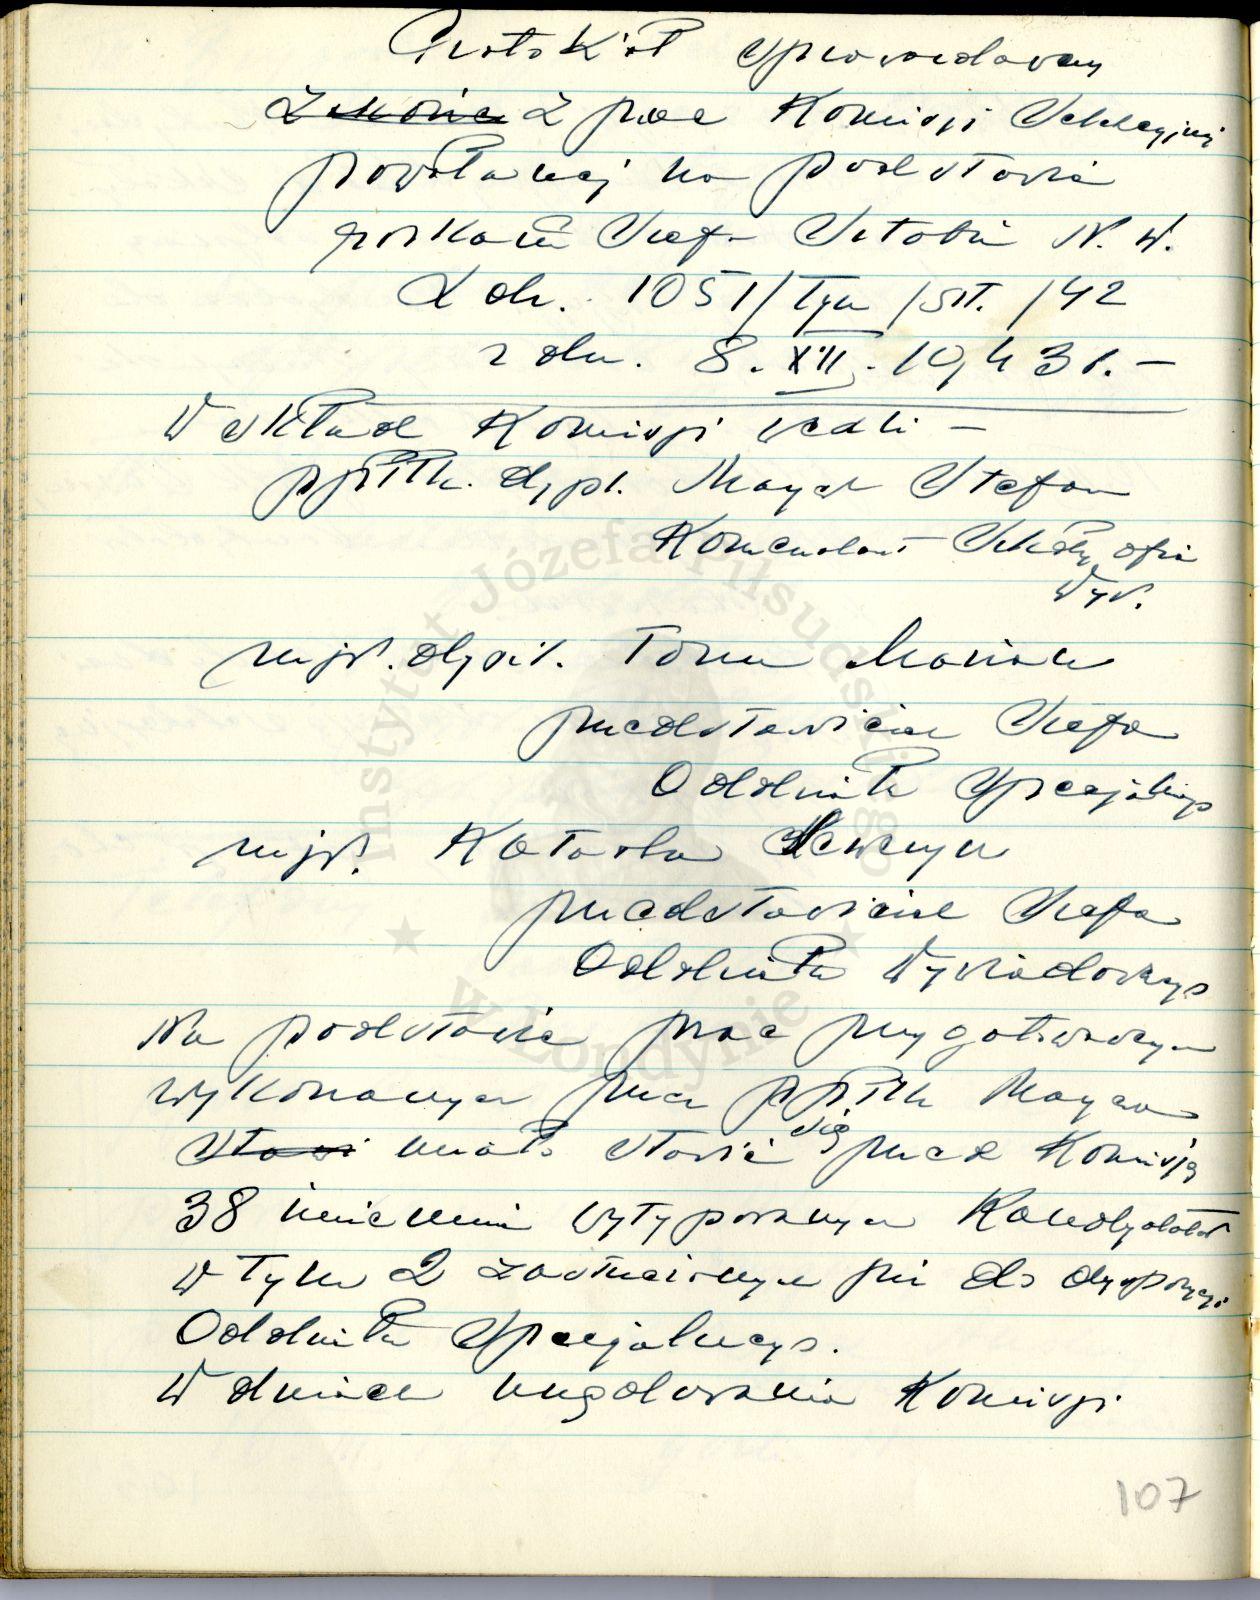 Protokół sprawozdawczy
z prac Komisji Selekcyjnej
powołanej na podstawie
rozkazu Szefa Sztabu N. W.
L. dz. 1051/Tjn/szt. /42
z dn. 8. XII. 1943 r. —
W skład Komisji weszli —
ppłk. dypl. Mayer Stefan
Komendant Szkoły ofic.
Wyw.
mjr. dypl. Marian
przedstawiciel Szefa
Oddziału Specjalnego
mjr.
przedstawiciel Szefa
Oddziału Wywiadowczego
Na podstawie prac przygotowawczych
wykonanych przez ppłk Mayera
miało stawić się przed Komisją
38 imiennie wytypowanych Kandydatów
w tym 2 zastrzeżonych już do dyspozycji
Oddziału Specjalnego.
W dniach urzędowania Komisji
107
Instytut Józefa Piłsudskiego
w Londynie